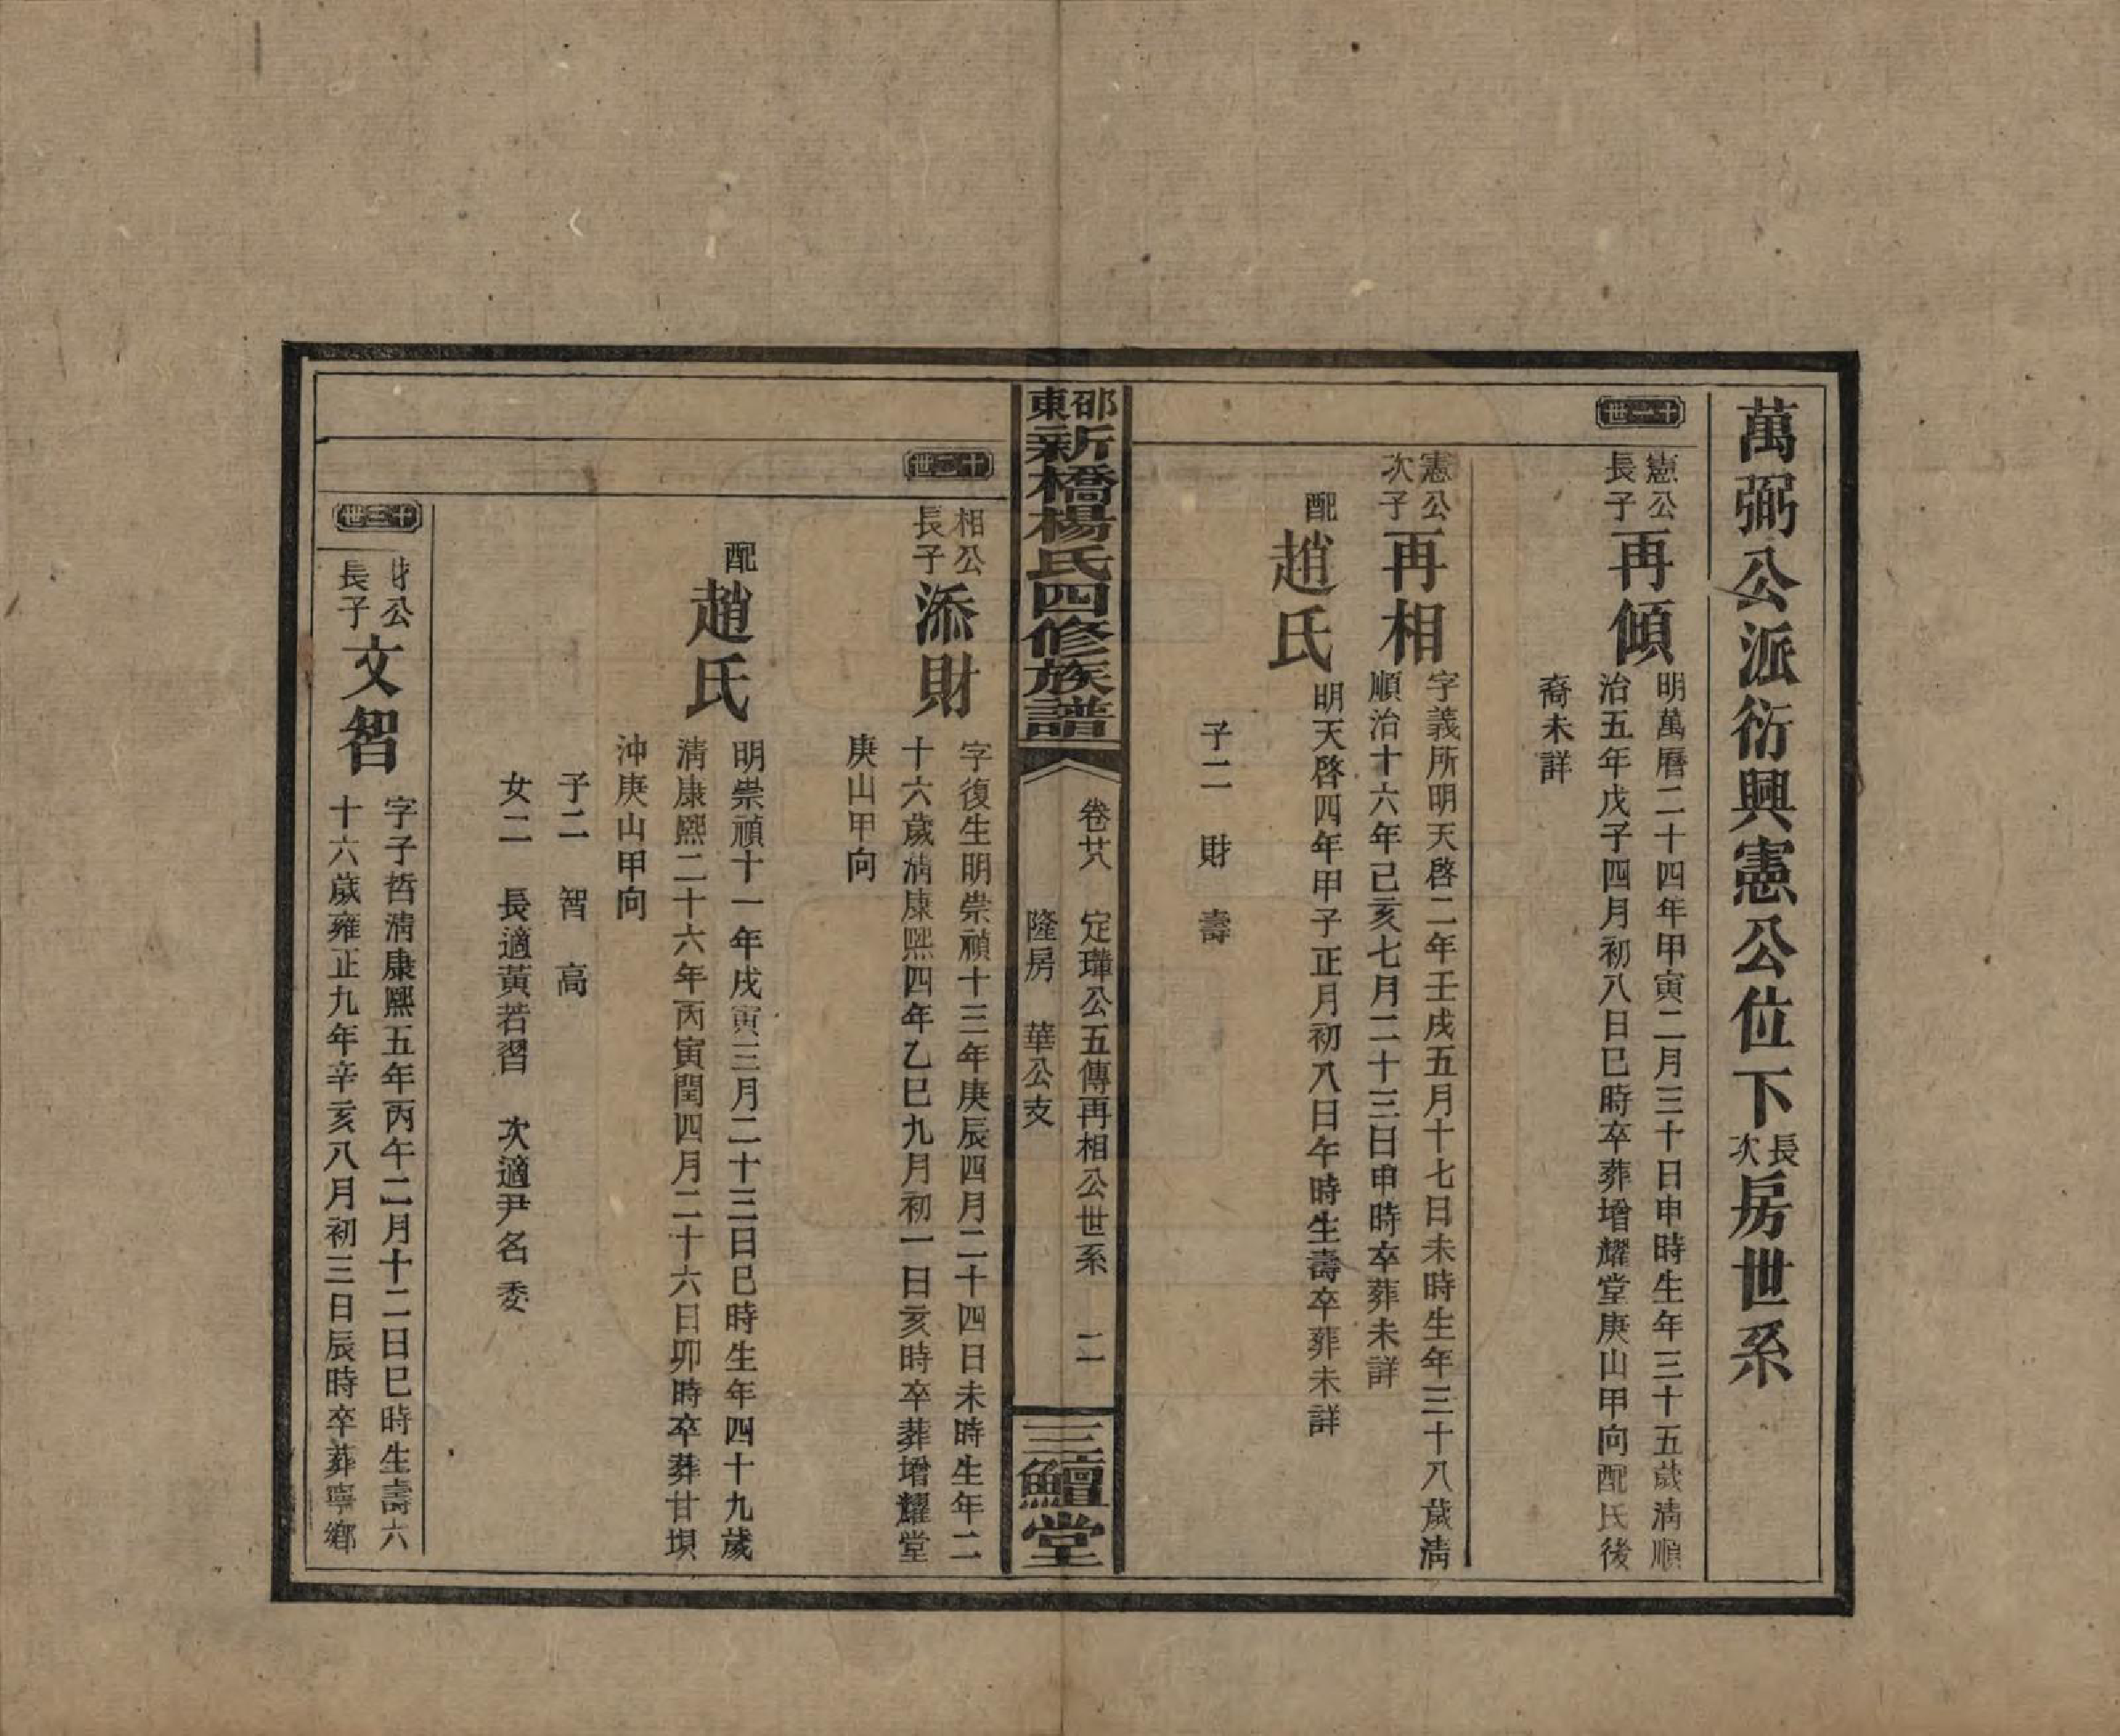 萬弼公派衍興憲公位下長次房世系
十一世
憲公長子再傾
明萬曆二十四年甲寅二月三十日申時生年三十五歲淸順
治五年戊子四月初八日巳時卒葬增耀堂庚山甲向配氏後
裔未詳
憲公次子再相
字義所明天啓二年壬戌五月十七日未時生年三十八歲淸
順治十六年己亥七月二十三日申時卒葬未詳
配趙氏
明天啓四年甲子正月初八日午時生壽卒葬未詳
子二 財 壽
邵東新橋楊氏四修族譜
卷廿八 定瓘公五傳再相公世系 二
隆房 華公支
三鱣堂
十二世
相公長子添財
字復生明崇禎十三年庚辰四月二十四日未時生年二
十六歲淸康熙四年乙巳九月初一日亥時卒葬增耀堂
庚山甲向
配趙氏
明崇禎十一年戊寅三月二十三日巳時生年四十九歲
淸康熙二十六年丙寅閏四月二十六日卯時卒葬甘垻
沖庚山甲向
子二 智 高
女二 長適黃若習 次適尹名委
十三世
財公長子文智
字子哲淸康熙五年丙午二月十二日巳時生壽六
十六歲雍正九年辛亥八月初三日辰時卒葬寧鄉